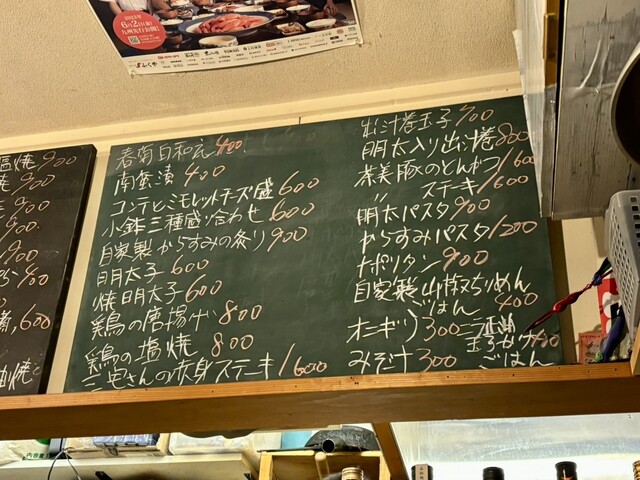 2023年
6月2日(金)
九州先行公開!
ふくや
塩焼 900
焼 900
900
900
900
400
600
春菊白和え 400
南蛮漬 400
コンテとミモレットチーズ盛 600
小鉢三種盛り合わせ 600
自家製からすみの炙り 900
明太子 600
焼明太子 600
鶏の唐揚げ 800
鶏の塩焼 800
三宅さんの赤身ステーキ 1600
出汁巻玉子 700
明太入り出汁巻 800
茶美豚のとんかつ 1600
〃 ステーキ 1600
明太パスタ 900
からすみパスタ 1200
ナポリタン 900
自家製山椒ちりめん
ごはん 400
オニギリ 300
みそ汁 300
玉子かけ
ごはん